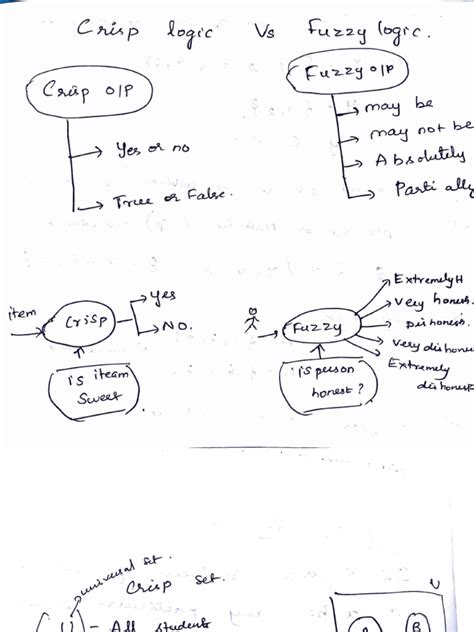 Crisp logic Vs Fuzzy logic.
Crisp O/P
Yes or no
True or False.
Fuzzy O/P
may be
may not be
Absolutely
Partially
item
Crisp
Yes
NO.
is iteam
Sweet
Fuzzy
is person
honest?
Extremely H
very honest.
Dishonest.
very dishones
Extremely
dishonest
universal set.
Crisp set.
(U) - All students
U
A
B